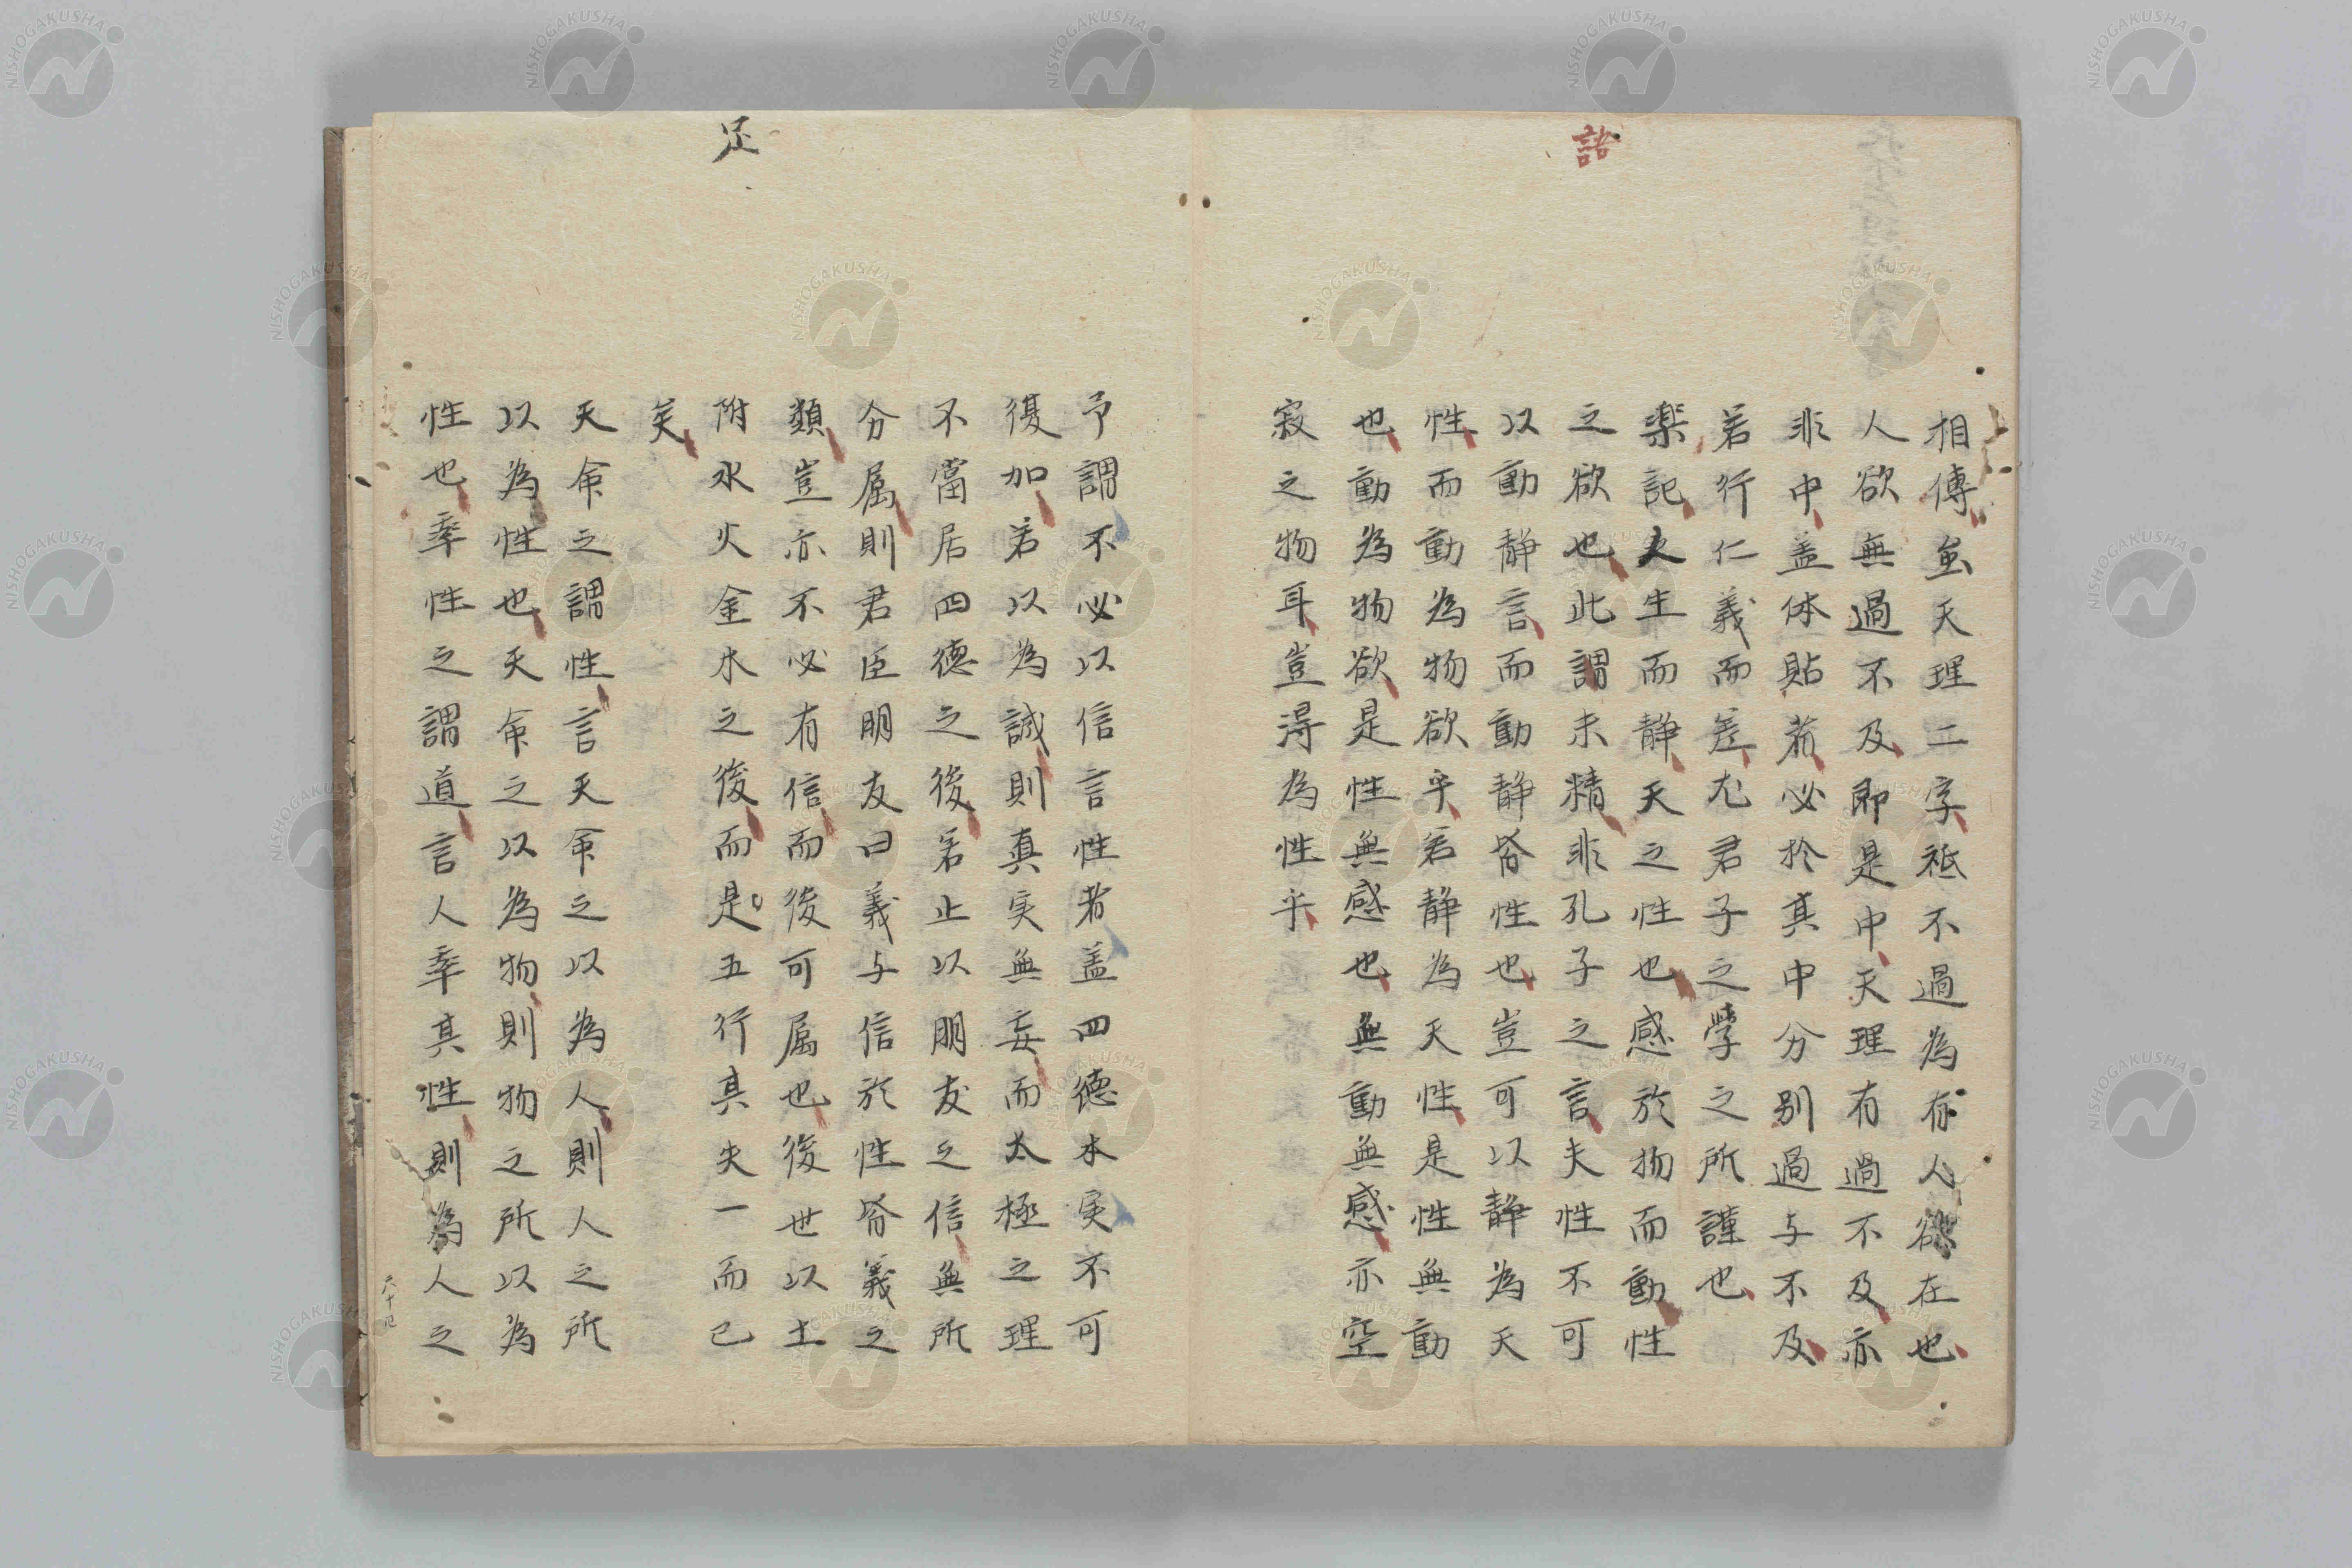 語
相傳虽天理二字祗不過為有人欲在也
人欲無過不及即是中天理有過不及亦
非中盖体貼者必於其中分別過与不及
若行仁義而差尤君子之學之所謹也
楽記人生而静天之性也感於物而動性
之欲也此謂未精非孔子之言夫性不可
以動静言而動静皆性也豈可以静為天
性而動為物欲乎若静為天性是性無動
也動為物欲是性無感也無動無感亦空
寂之物耳豈淂為性乎
足
予謂不必以信言性者盖四德本実不可
復加若以為誠則真実無妄而太極之理
不當居四德之後若止以朋友之信無所
分属則君臣朋友曰義与信於性皆義之
類豈亦不必有信而後可属也後世以土
附水火金木之後而是五行其失一而已
矣
天命之謂性言天命之以為人則人之所
以為性也天命之以為物則物之所以為
性也率性之謂道言人率其性則為人之
NISHOGAKUSHA